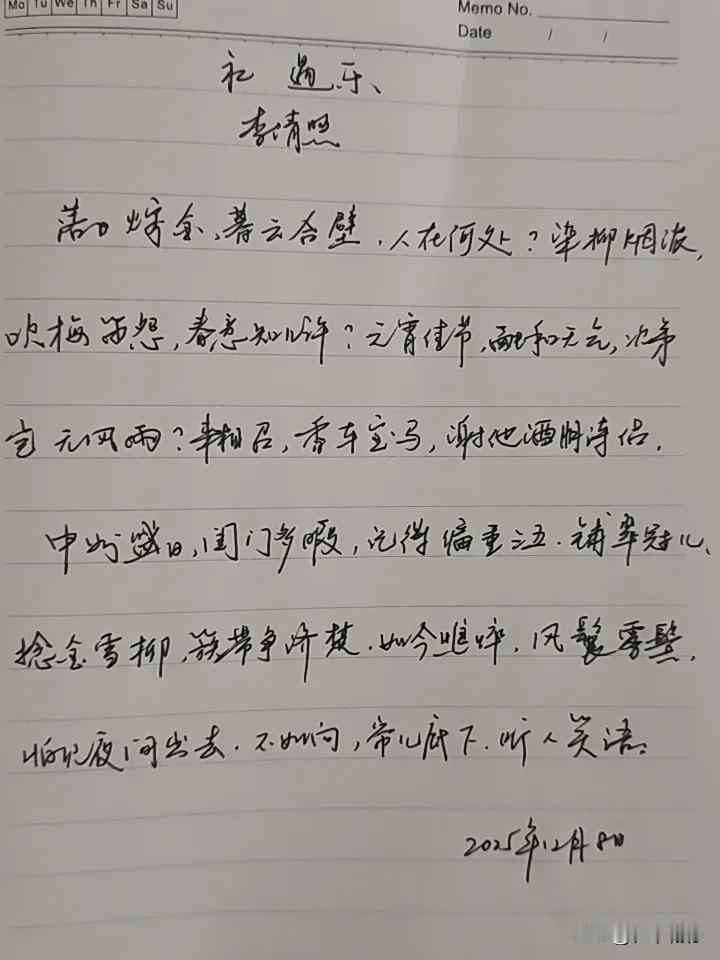 Mo Tu We Th Fr Sa Su
Memo No.
Date / /
永遇乐、
李清照
落日熔金、暮云合璧，人在何处？染柳烟浓，
吹梅笛怨，春意知几许？元宵佳节，融和天气，次第
岂无风雨？来相召，香车宝马，谢他酒朋诗侣。
中州盛日，闺门多暇，记得偏重三五．铺翠冠儿、
捻金雪柳，簇带争济楚．如今憔悴，风鬟雾鬓，
怕见夜间出去．不如向，帘儿底下．听人笑语。
2025年12月8日